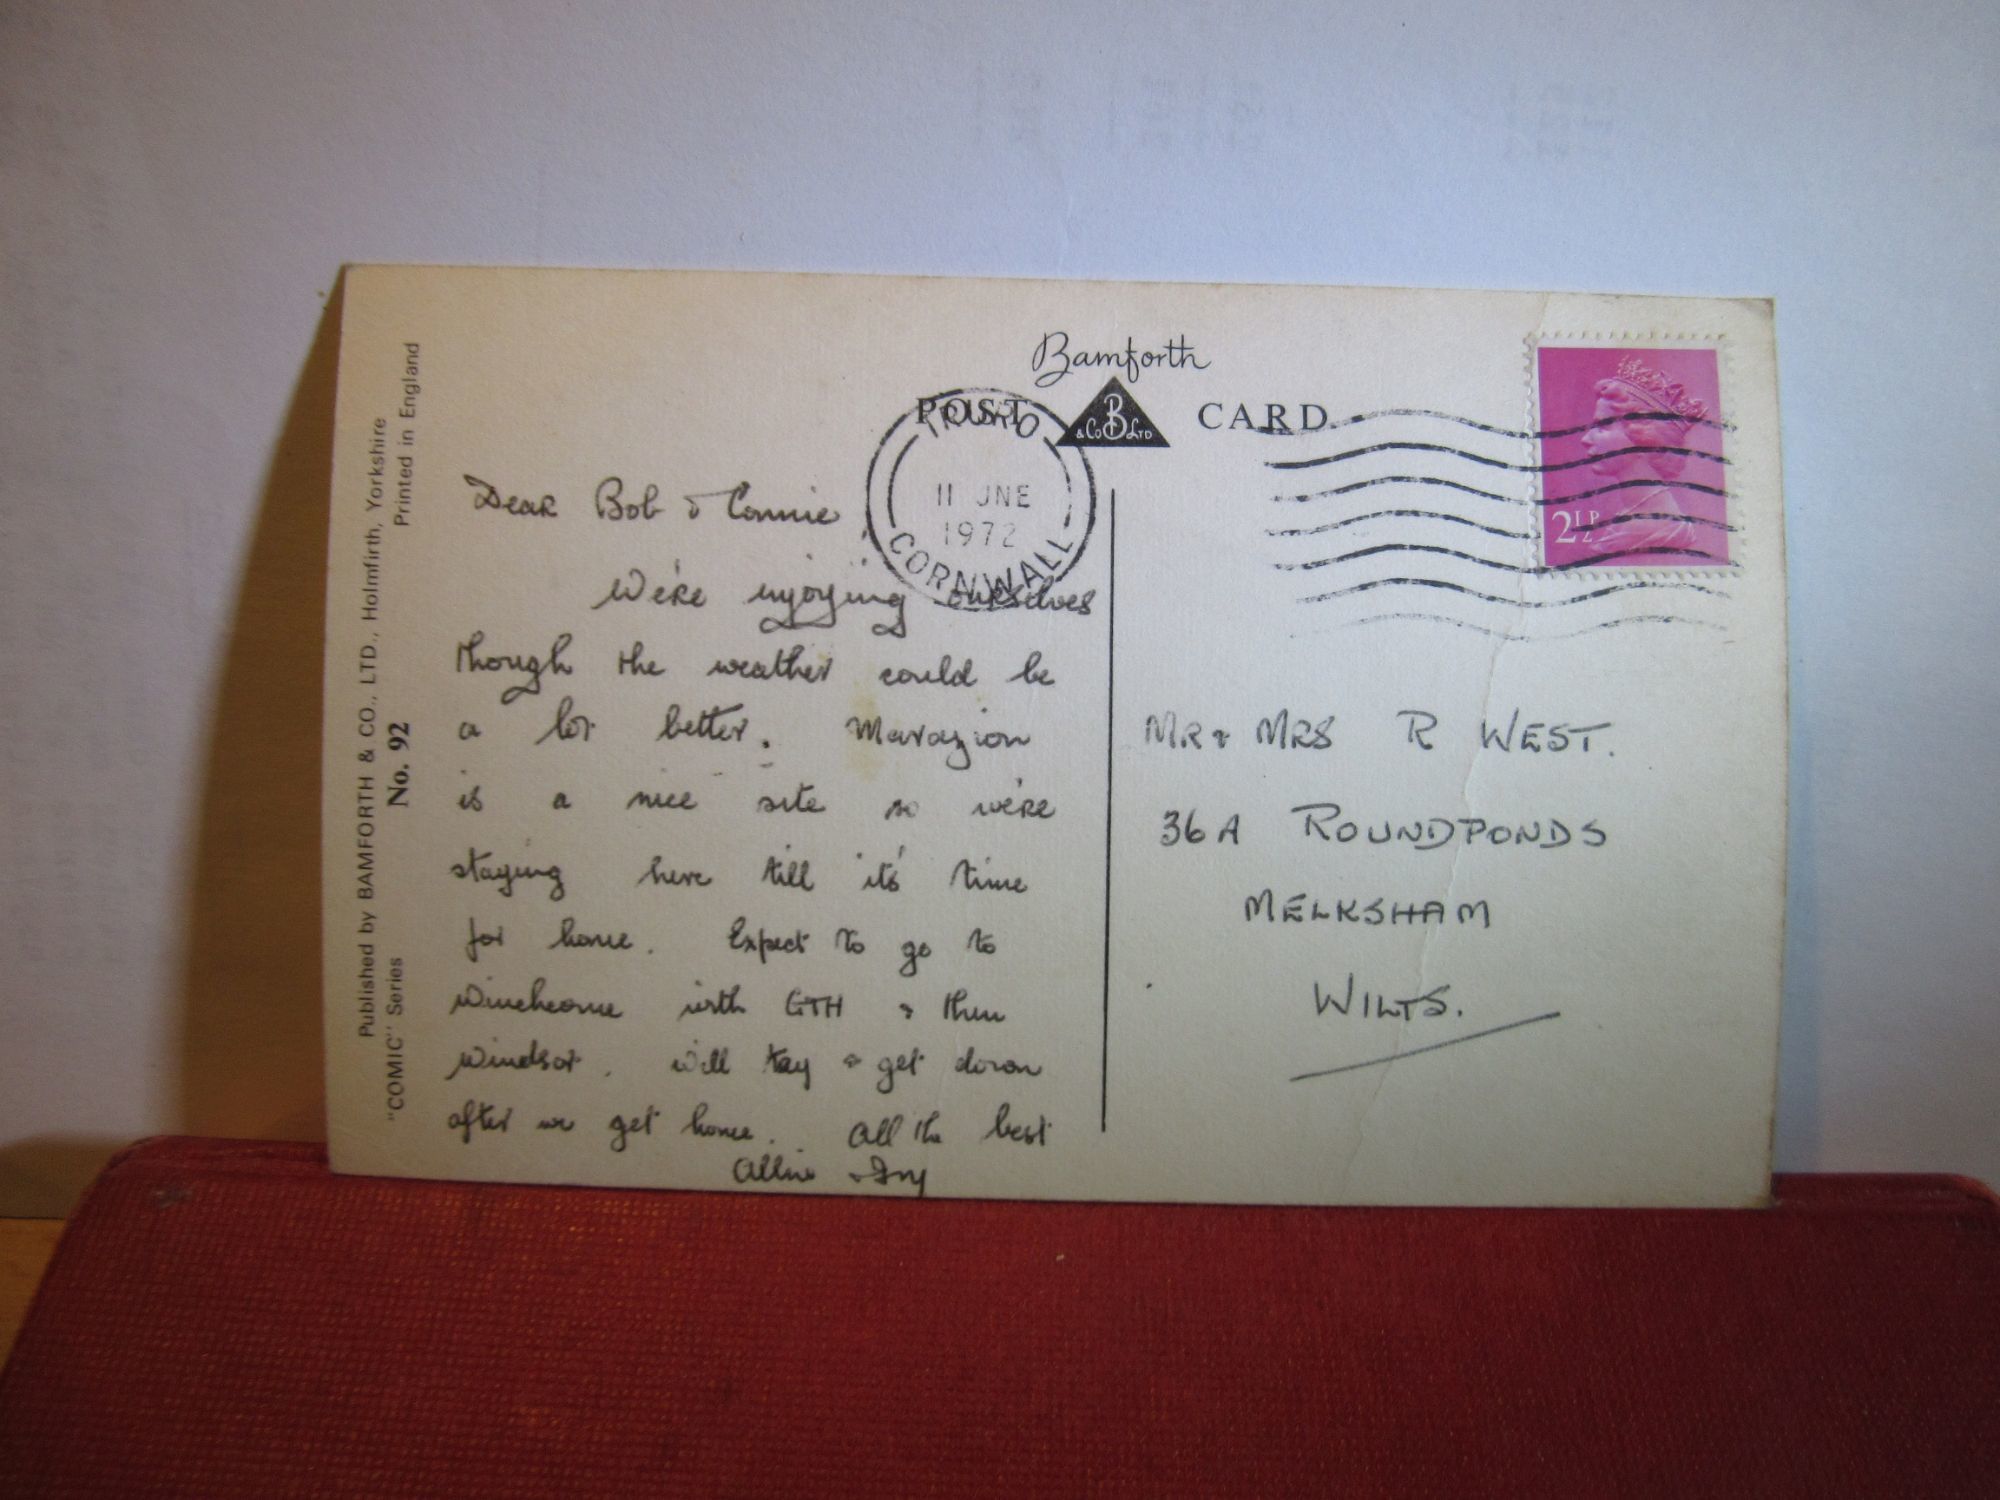 Published by BAMFORTH & CO., LTD., Holmfirth, Yorkshire
"COMIC" Series No. 92 Printed in England
Bamforth
POST CARD
& Co B LTD
TRURO
11 JNE
1972
CORNWALL
2½P
Dear Bob & Connie,
We're enjoying ourselves
though the weather could be
a lot better. Marazion
is a nice site so we're
staying here till it's time
for home. Expect to go to
Winchcome with GTH & then
Windsor. Will tay & get down
after we get home. All the best
Allie & Ivy
MR & MRS R WEST.
36A ROUNDPONDS
MELKSHAM
WILTS.